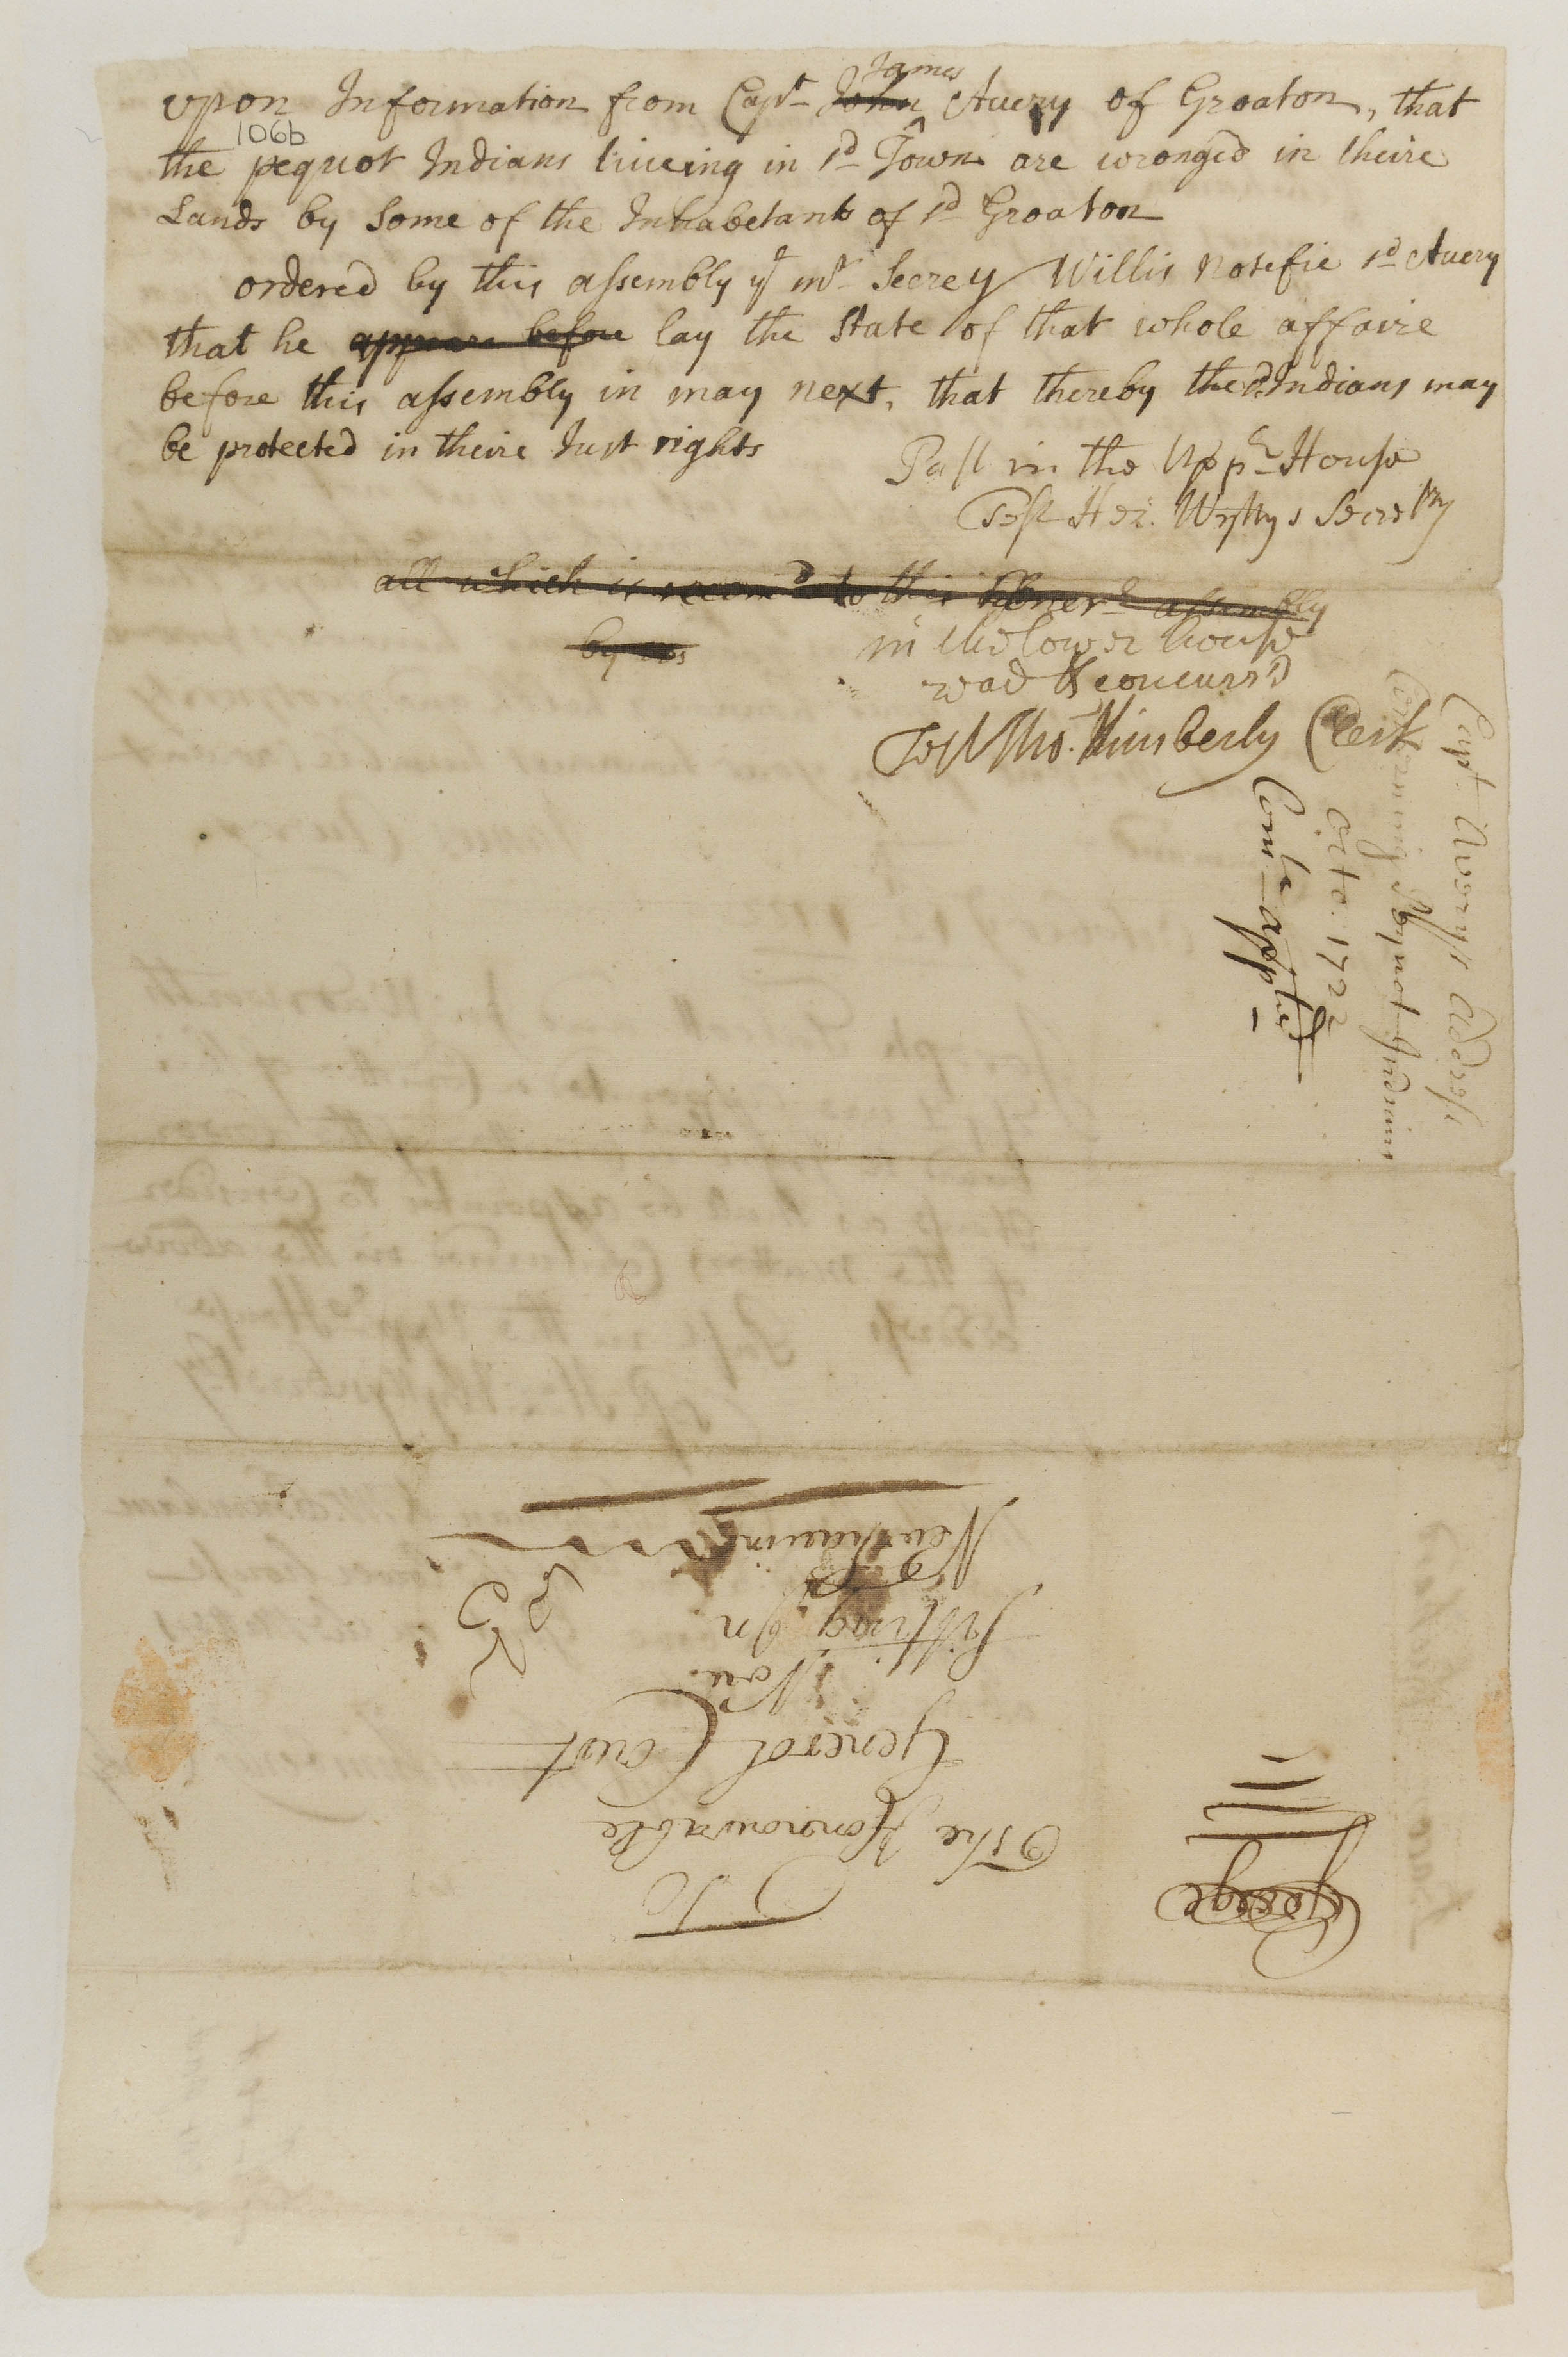 James
upon Information from Capt John Auery of Groaton, that
106b
the pequot Indians liueing in sd Town are wronged in theire
Lands by Some of the Inhabetants of sd Groaton
ordered by this assembly yt mr Secrey Willis Notefie sd Auery
that he appeare before lay the State of that whole affaire
before this assembly in may next, that thereby the sd Indians may
be protected in theire Just rights
Past in the Uppr House
Test Hez. Wyllys Secretry
all which is recomd to this Honerl assembly
by us
in the lower house
read & concurrd
Test Tho. Kimberly Clerk
Capt. Averys Adress
Concerning Pequot Indians
Octo. 1722
Comte appted
George
To
The Honourable
General Court
Now
Sitting In
New haven